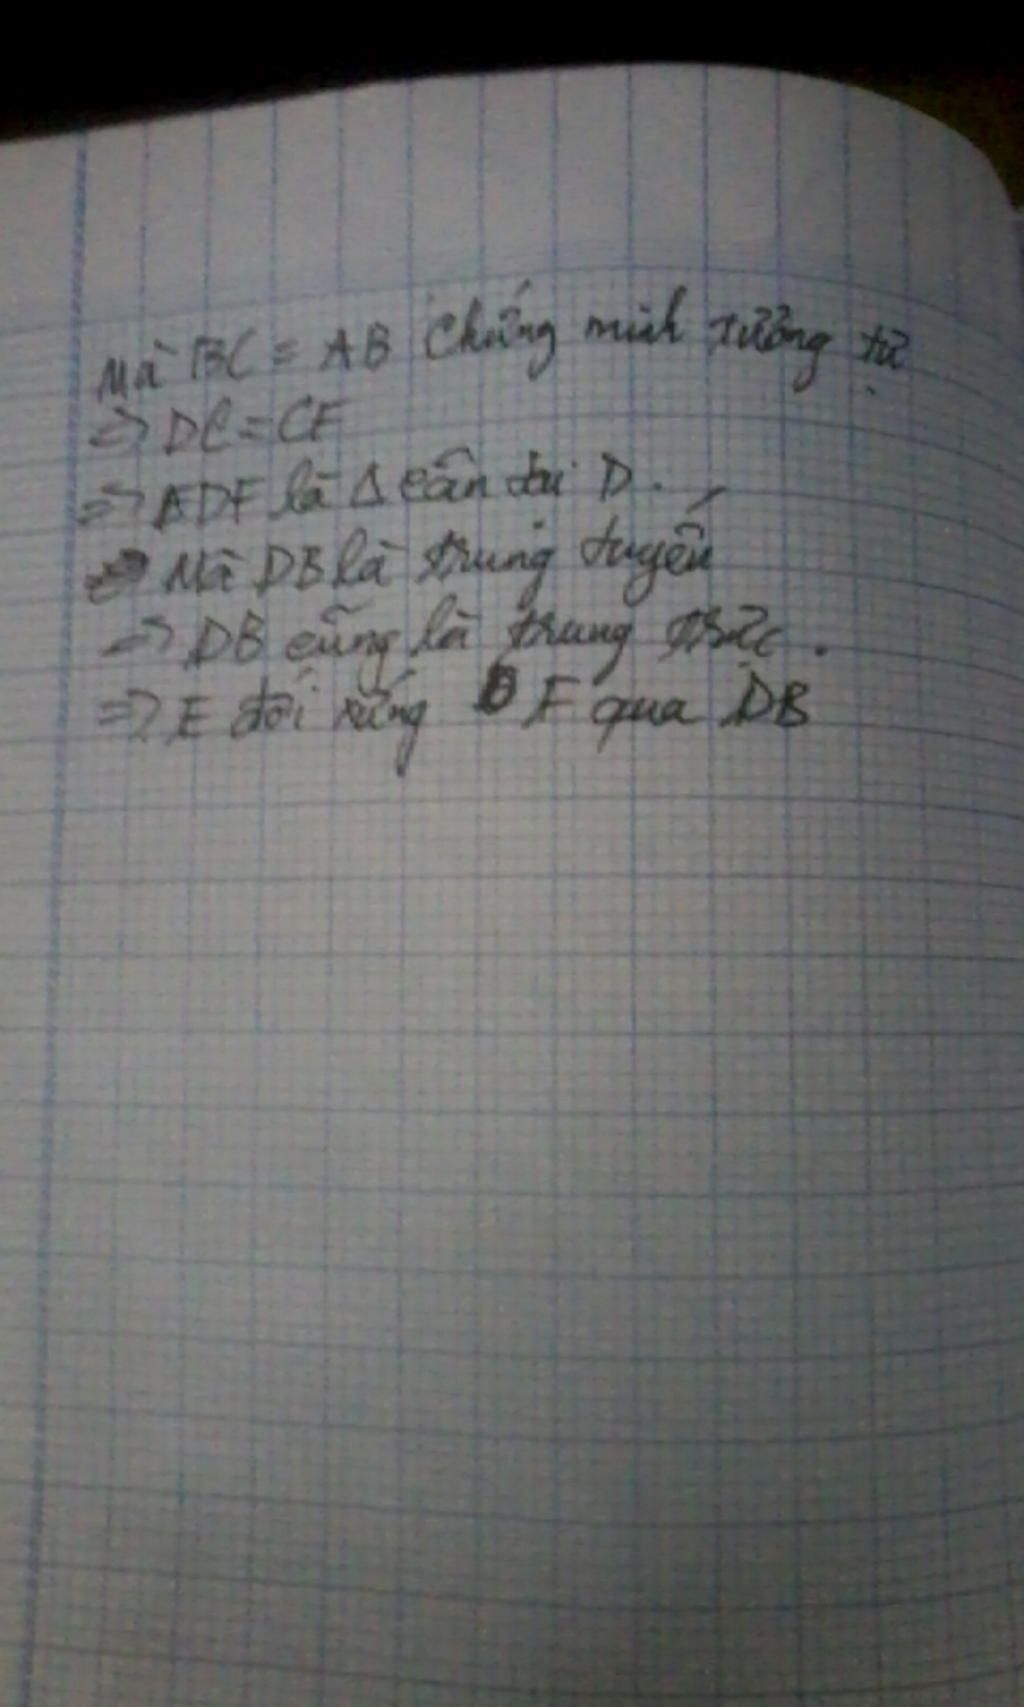 Mà BC = AB chứng minh tương tự
=> DC = CF
=> EDF là Δ cân tại D.
Mà DB là trung tuyến
=> DB cũng là trung trực.
=> E đối xứng F qua DB